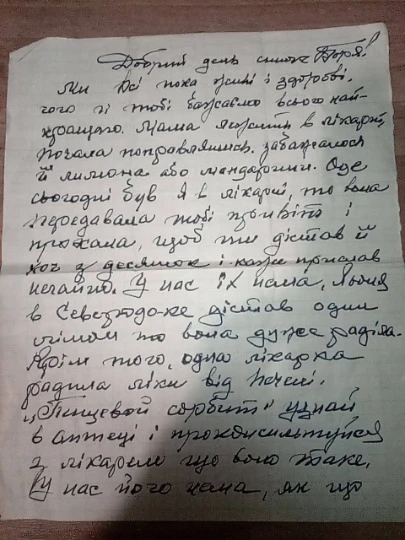 Добрий день синок Боря!
Ми всі поки живі і здорові,
чого й тобі бажаємо всього най-
кращого. Мама лежить в лікарні,
почала поправлятись, забажалося
їй лимона або мандарини. Оце
сьогодні був я в лікарні, то вона
передавала тобі привіт і
прохала, щоб ти дістав їй
хоч з десяток і каже прислав
негайно. У нас їх нема,
в дістав один
лімон то вона дуже раділа.
Крім того, одна лікарка
радила ліки від печені.
„Пищевой сорбит" узнай
в аптеці і проконсультуйся
з лікарем що воно таке.
У нас його нема, як що